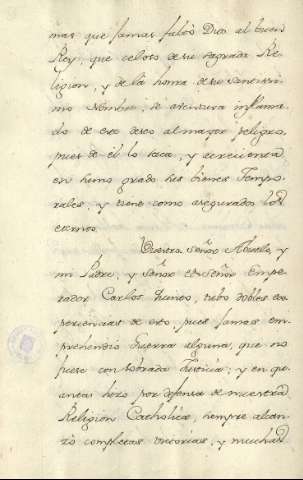 mas que jamas faltó Dios al buen
Rey, que celoso de su sagrada Re-
ligion, y de la honra de su Santissi-
mo Nombre, se aventura inflama-
do de este deseo al mayor peligro,
pues de el lo saca, y acrecienta
en sumo grado sus bienes Tempo-
rales, y tiene como asegurados los
eternos.
Vuestro Señor Abuelo, y
mi Padre, y Señor el Señor Empe-
rador Carlos Quinto, tubo dobles ex-
periencias de esto, pues jamas em-
prehendió Guerra alguna, que no
fuese con sobrada Justicia; y en qu-
antas hizo por defensa de nuestra
Religion Catholica, siempre alcan-
zó completas victorias, y muchas